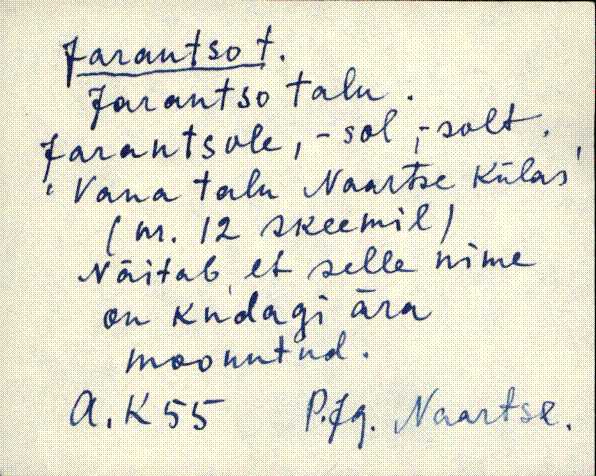 Jarantso t.
Jarantso talu.
Jarantsole, -sol, -solt.
'Vana talu Naartse külas'
(nr. 12 skeemil)
Näitab, et selle nime
on kudagi ära
moonutud.
A. K 55 P.Jg. Naartse.